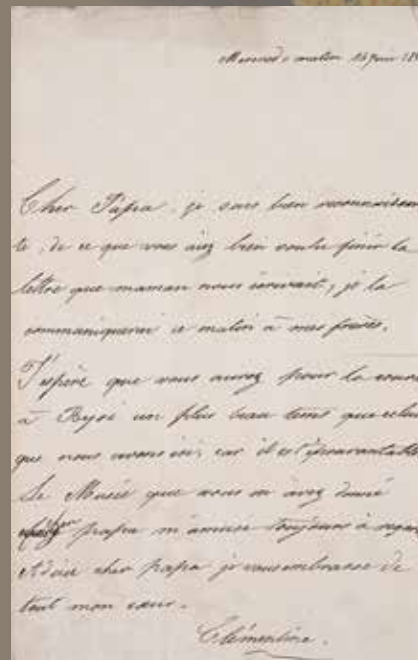 Mercredi matin 16 Juin 18
Cher Papa, je suis bien reconnaissan
te, de ce que vous aiez bien voulu finir la
lettre que maman nous écrivait, je la
communiquerai ce matin à mes frères.
J'espère que vous aurez pour la course
à Bysi un plus beau tems que celui
que nous avons ici, car il est épouvantable
Le Musée que vous m'avez donné
papa m'amuse toujours à regar
Adieu cher papa je vous embrasse de
tout mon cœur.
Clémentine.